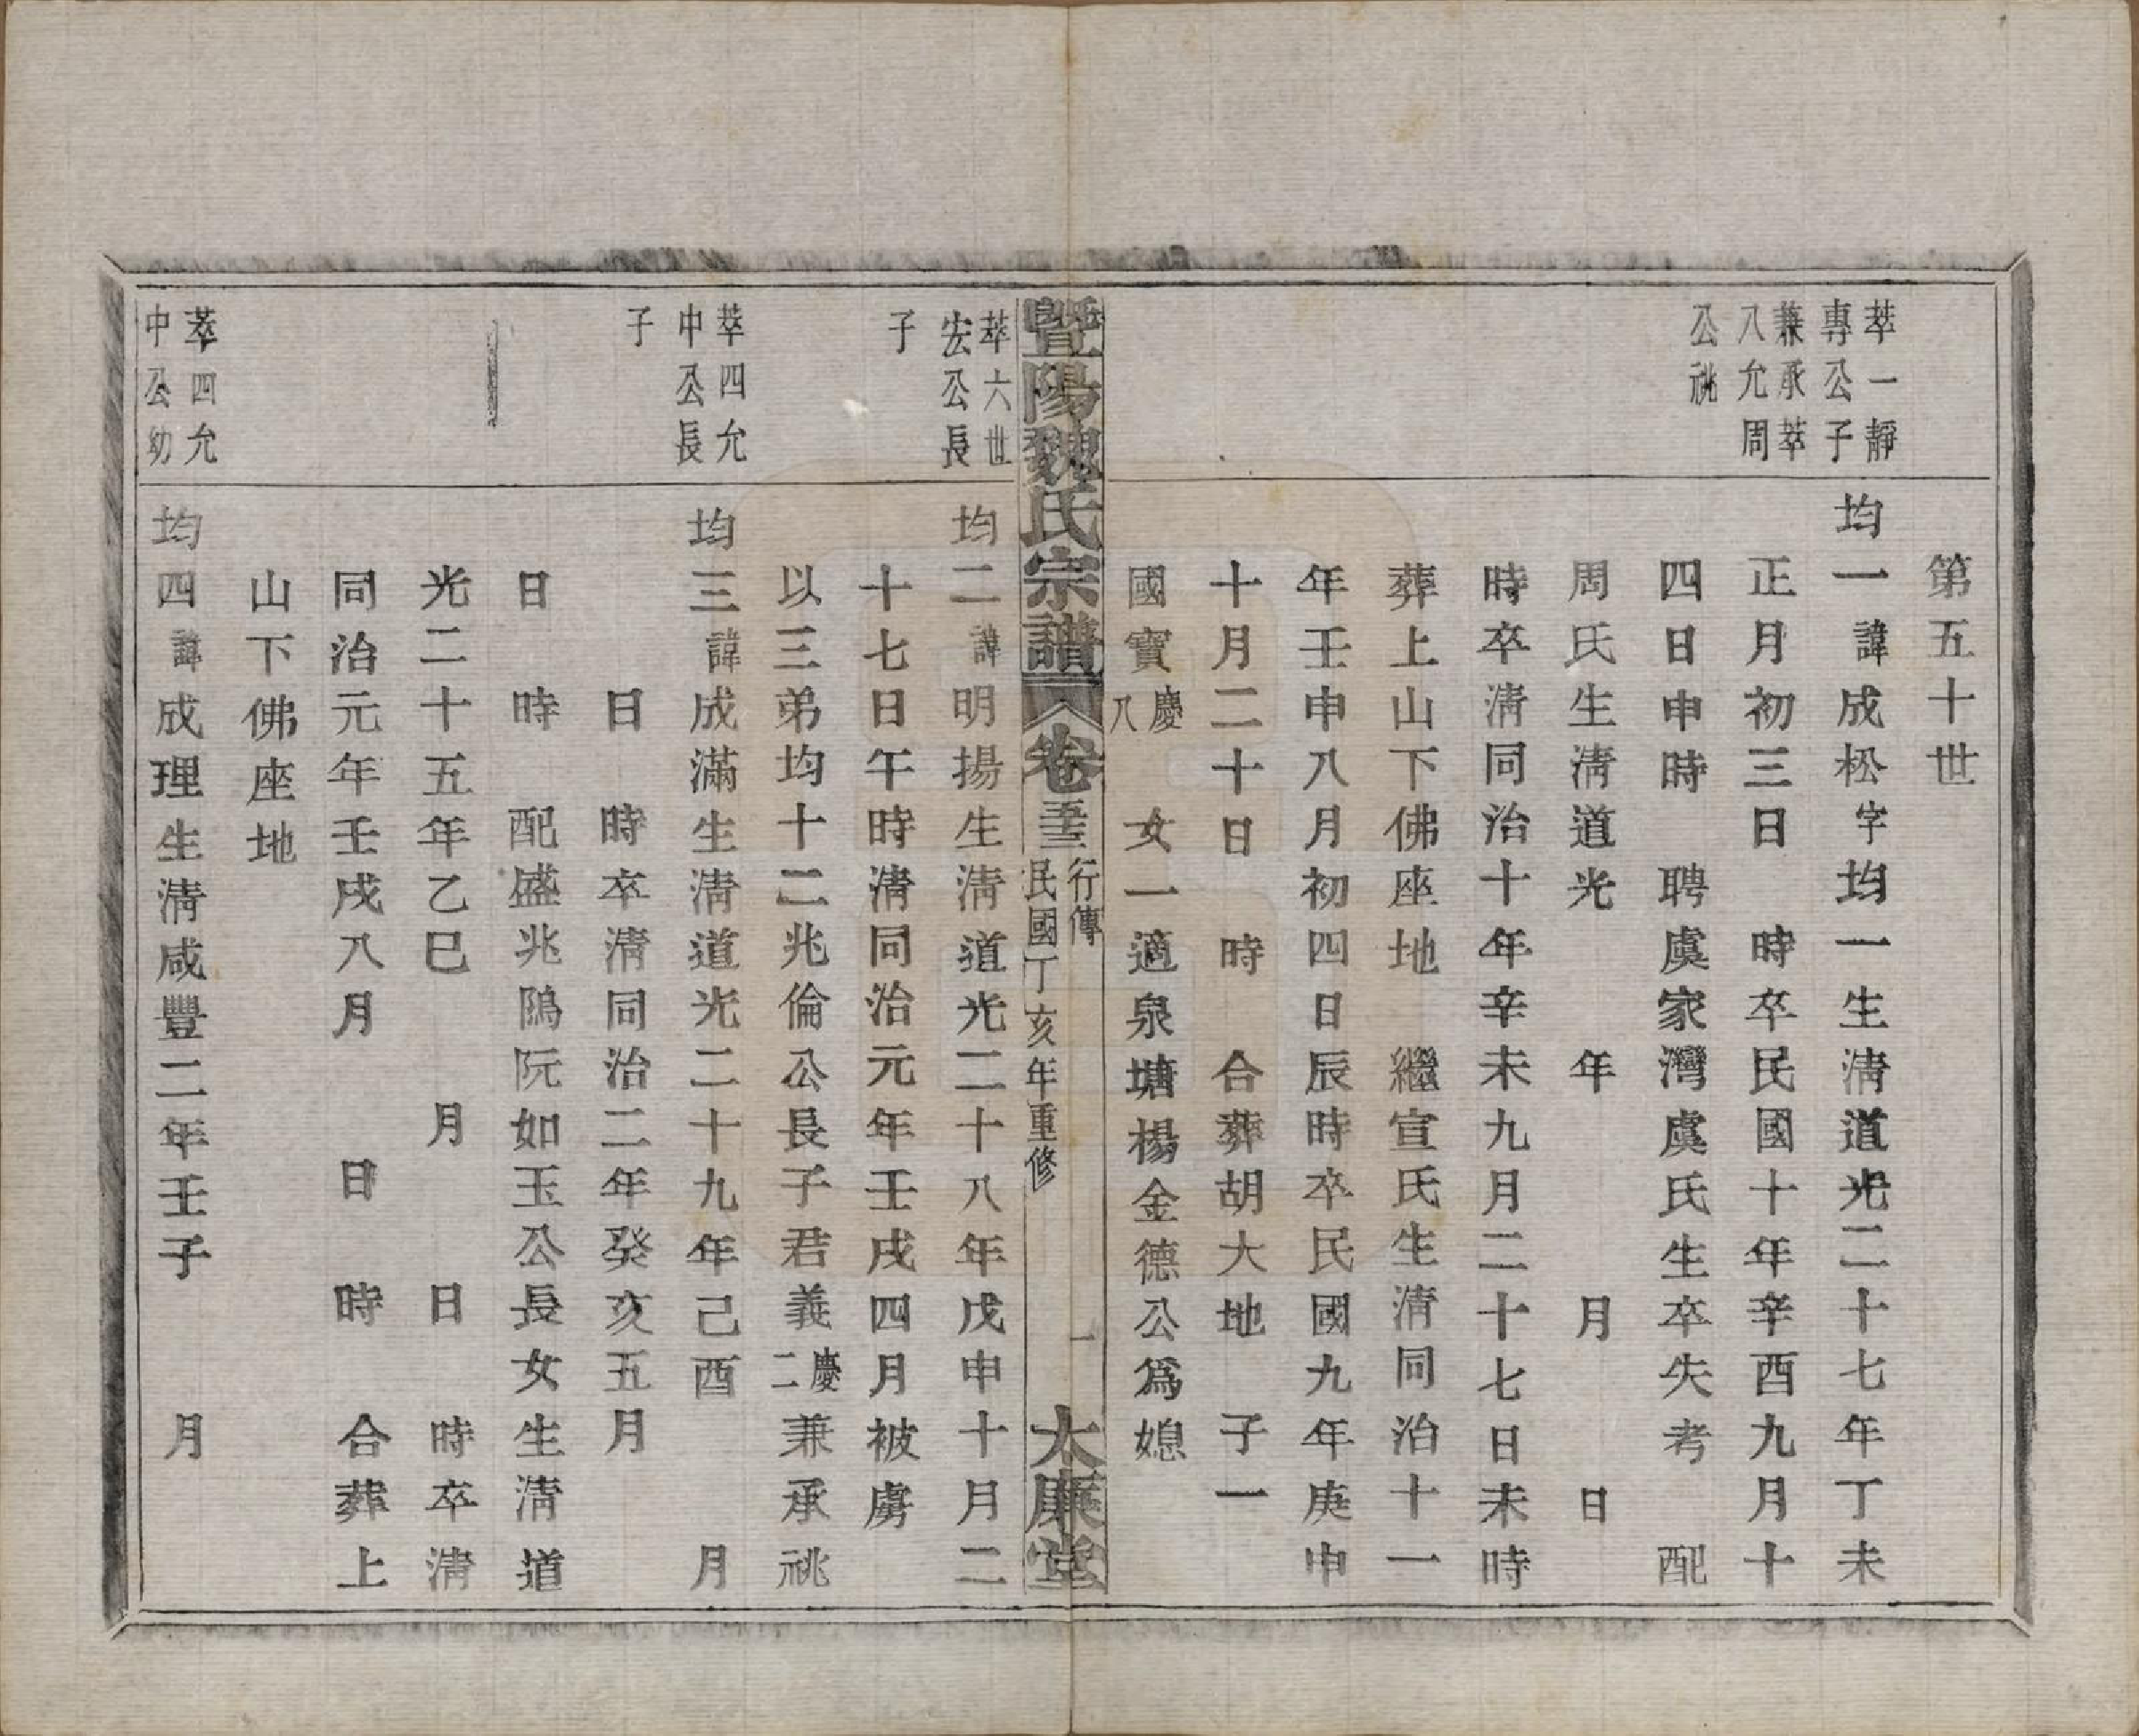 第五十世
萃一靜
專公子
兼承萃
八允周
公祧
均一諱成松字均一生淸道光二十七年丁未
正月初三日　時卒民國十年辛酉九月十
四日申時　聘虞家灣虞氏生卒失考　配
周氏生淸道光　年　月　日
時卒淸同治十年辛未九月二十七日未時
葬上山下佛座地　繼宣氏生淸同治十一
年壬申八月初四日辰時卒民國九年庚申
十月二十日　時　合葬胡大地　子一
國寶慶八　女一適泉塘楊金德公爲媳
暨陽魏氏宗譜　卷五十三　行傳　民國丁亥年重修　一　太廉堂
萃六世
宏公長
子
均二諱明揚生淸道光二十八年戊申十月二
十七日午時淸同治元年壬戌四月被虜
以三弟均十二兆倫公長子君義慶二兼承祧
萃四允
中公長
子
均三諱成滿生淸道光二十九年己酉　月
日　時卒淸同治二年癸亥五月
日　時　配盛兆隖阮如玉公長女生淸道
光二十五年乙巳　月　日　時卒淸
同治元年壬戌八月　日　時　合葬上
山下佛座地
萃四允
中公幼
均四諱成理生淸咸豐二年壬子　月